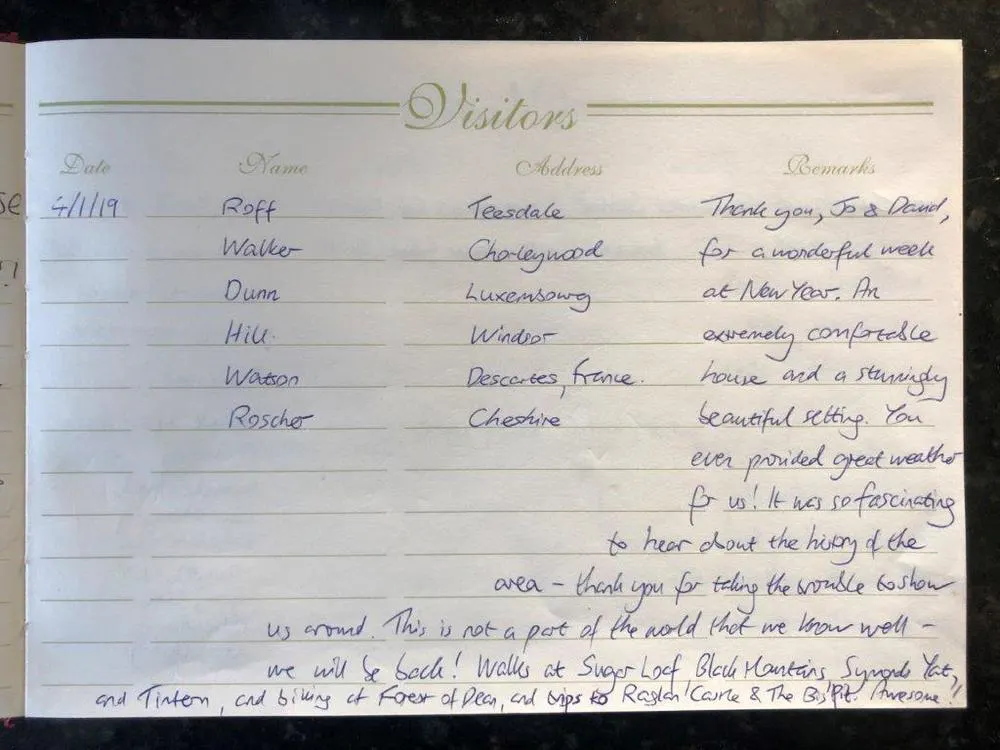 Visitors
Date Name Address Remarks
se 4/1/19 Roff Teesdale Thank you, Jo & David,
Walker Chorleywood for a wonderful week
Dunn Luxembourg at New Year. An
Hill. Windsor extremely comfortable
Watson Descartes, France. house and a stunningly
Roscher Cheshire beautiful setting. You
even provided great weather
for us! It was so fascinating
to hear about the history of the
area - thank you for taking the trouble to show
us around. This is not a part of the world that we know well -
we will be back! Walks at Sugar Loaf, Black Mountains, Symonds Yat,
and Tintern, and biking at Forest of Dean, and trips to Raglan Castle & The Big Pit. Awesome!!